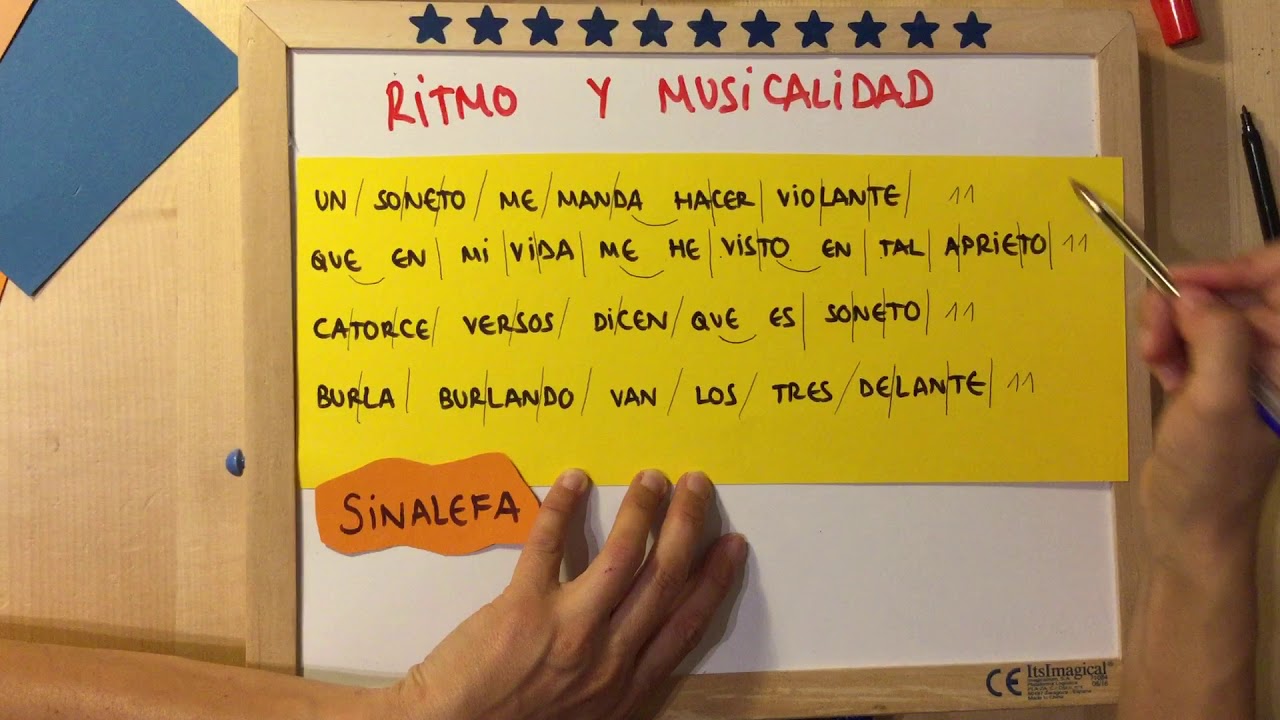 RITMO Y MUSICALIDAD
UN / SO|NE|TO / ME / MAN|DA HA|CER| VIO|LAN|TE| 11
QUE EN | MI |VI|DA | ME HE | VIS|TO EN | TAL | A|PRIE|TO | 11
CA|TOR|CE/ VER|SOS / DI|CEN / QUE ES | SO|NE|TO | 11
BUR|LA | BUR|LAN|DO / VAN / LOS / TRES / DE|LAN|TE | 11
SINALEFA
CE ItsImagical